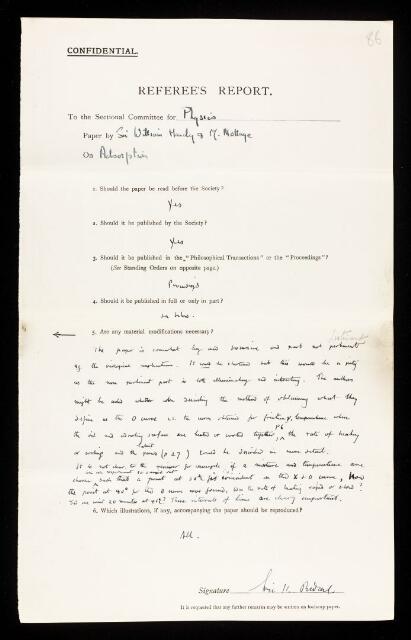 86
CONFIDENTIAL.
REFEREE'S REPORT.
To the Sectional Committee for Physics
Paper by Sir William Hardy & M. Nottage
On Adsorption
1. Should the paper be read before the Society?
Yes
2. Should it be published by the Society?
Yes
3. Should it be published in the "Philosophical Transactions" or the "Proceedings"?
(See Standing Orders on opposite page.)
Proceedings
4. Should it be published in full or only in part?
in
5. Are any material modifications necessary?
The paper is somewhat long and discursive and part not pertinent
the It could be shortened but this would be a pity
as the non pertinent part is both illuminating and interesting. The authors
might be asked whether the method of obtaining what they
define as the O curve i.e. the curve obtained for friction temperature when
the oil and surface are heated or cooled together, P6 the rate of heating
or cooling and the (p 27) could be described in more detail.
It is not clear to the for example, if a mixture and temperature are
chosen such that a point at 50° the O curve, How
the point at 40° for the O curve was found, was the rate of heating rapid or slow?
20 minutes at 41°? These intervals of time are clearly important.
6. Which illustrations, if any, accompanying the paper should be reproduced?
All.
Signature Eric K. Rideal
It is requested that any further remarks may be written on foolscap paper.